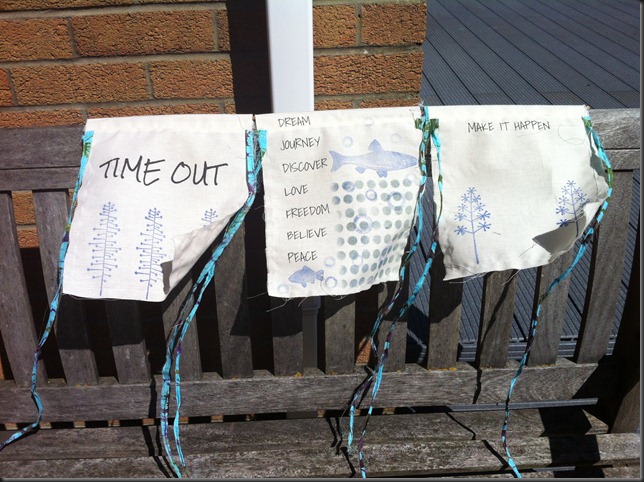 TIME OUT
DREAM
JOURNEY
DISCOVER
LOVE
FREEDOM
BELIEVE
PEACE
MAKE IT HAPPEN